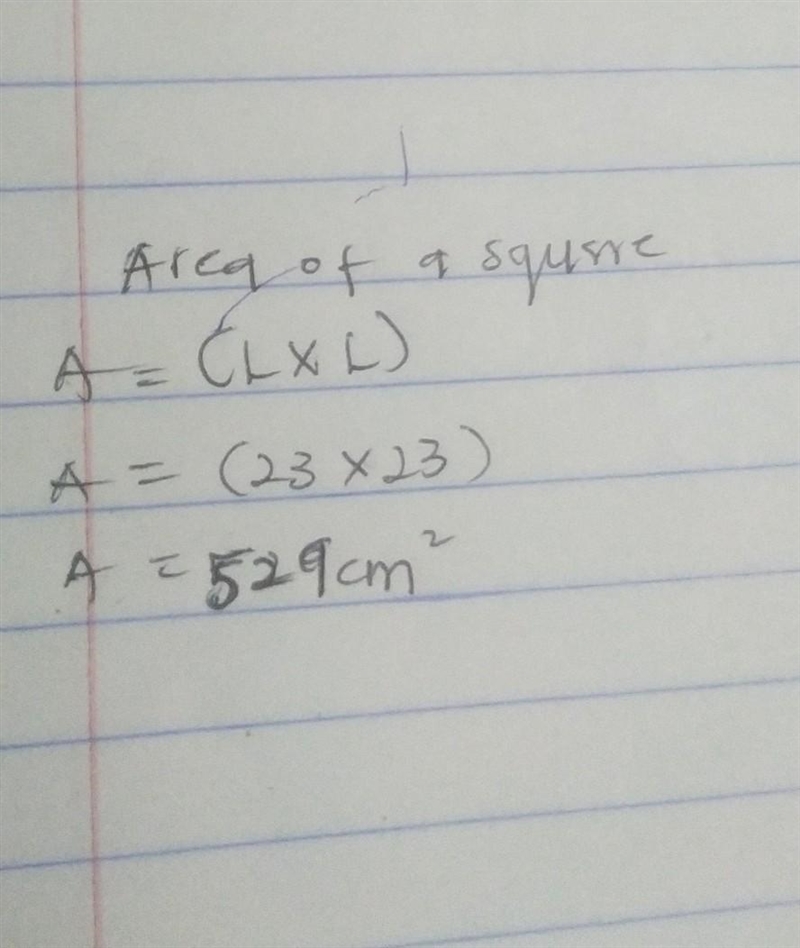 Area of a squsre
A = (L X L)
A = (23 x 23)
A = 529cm²